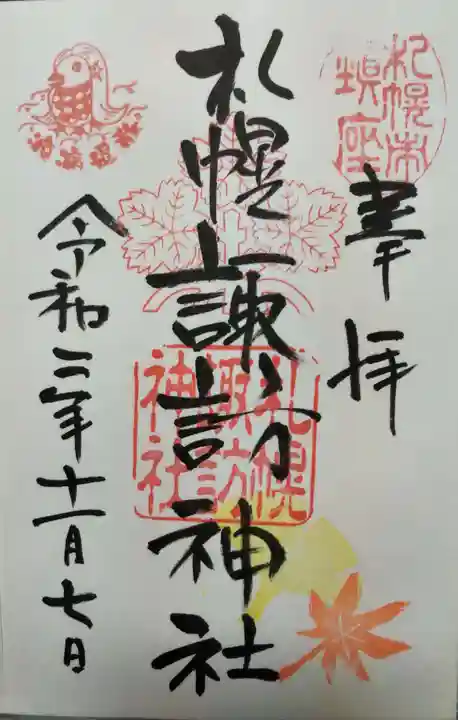 札幌市
鎮座
奉拝
札幌諏訪神社
札幌
諏訪
神社
令和三年十一月七日